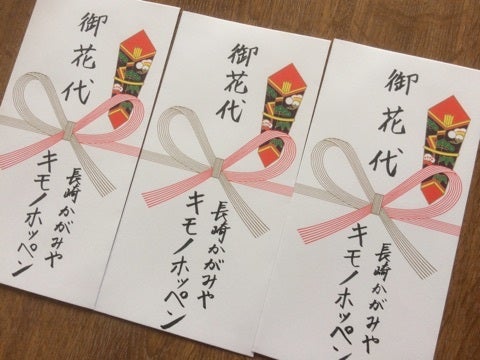 御花代
長崎かがみや
キモノホッペン
御花代
長崎かがみや
キモノホッペン
御花代
長崎かがみや
キモノホッペン